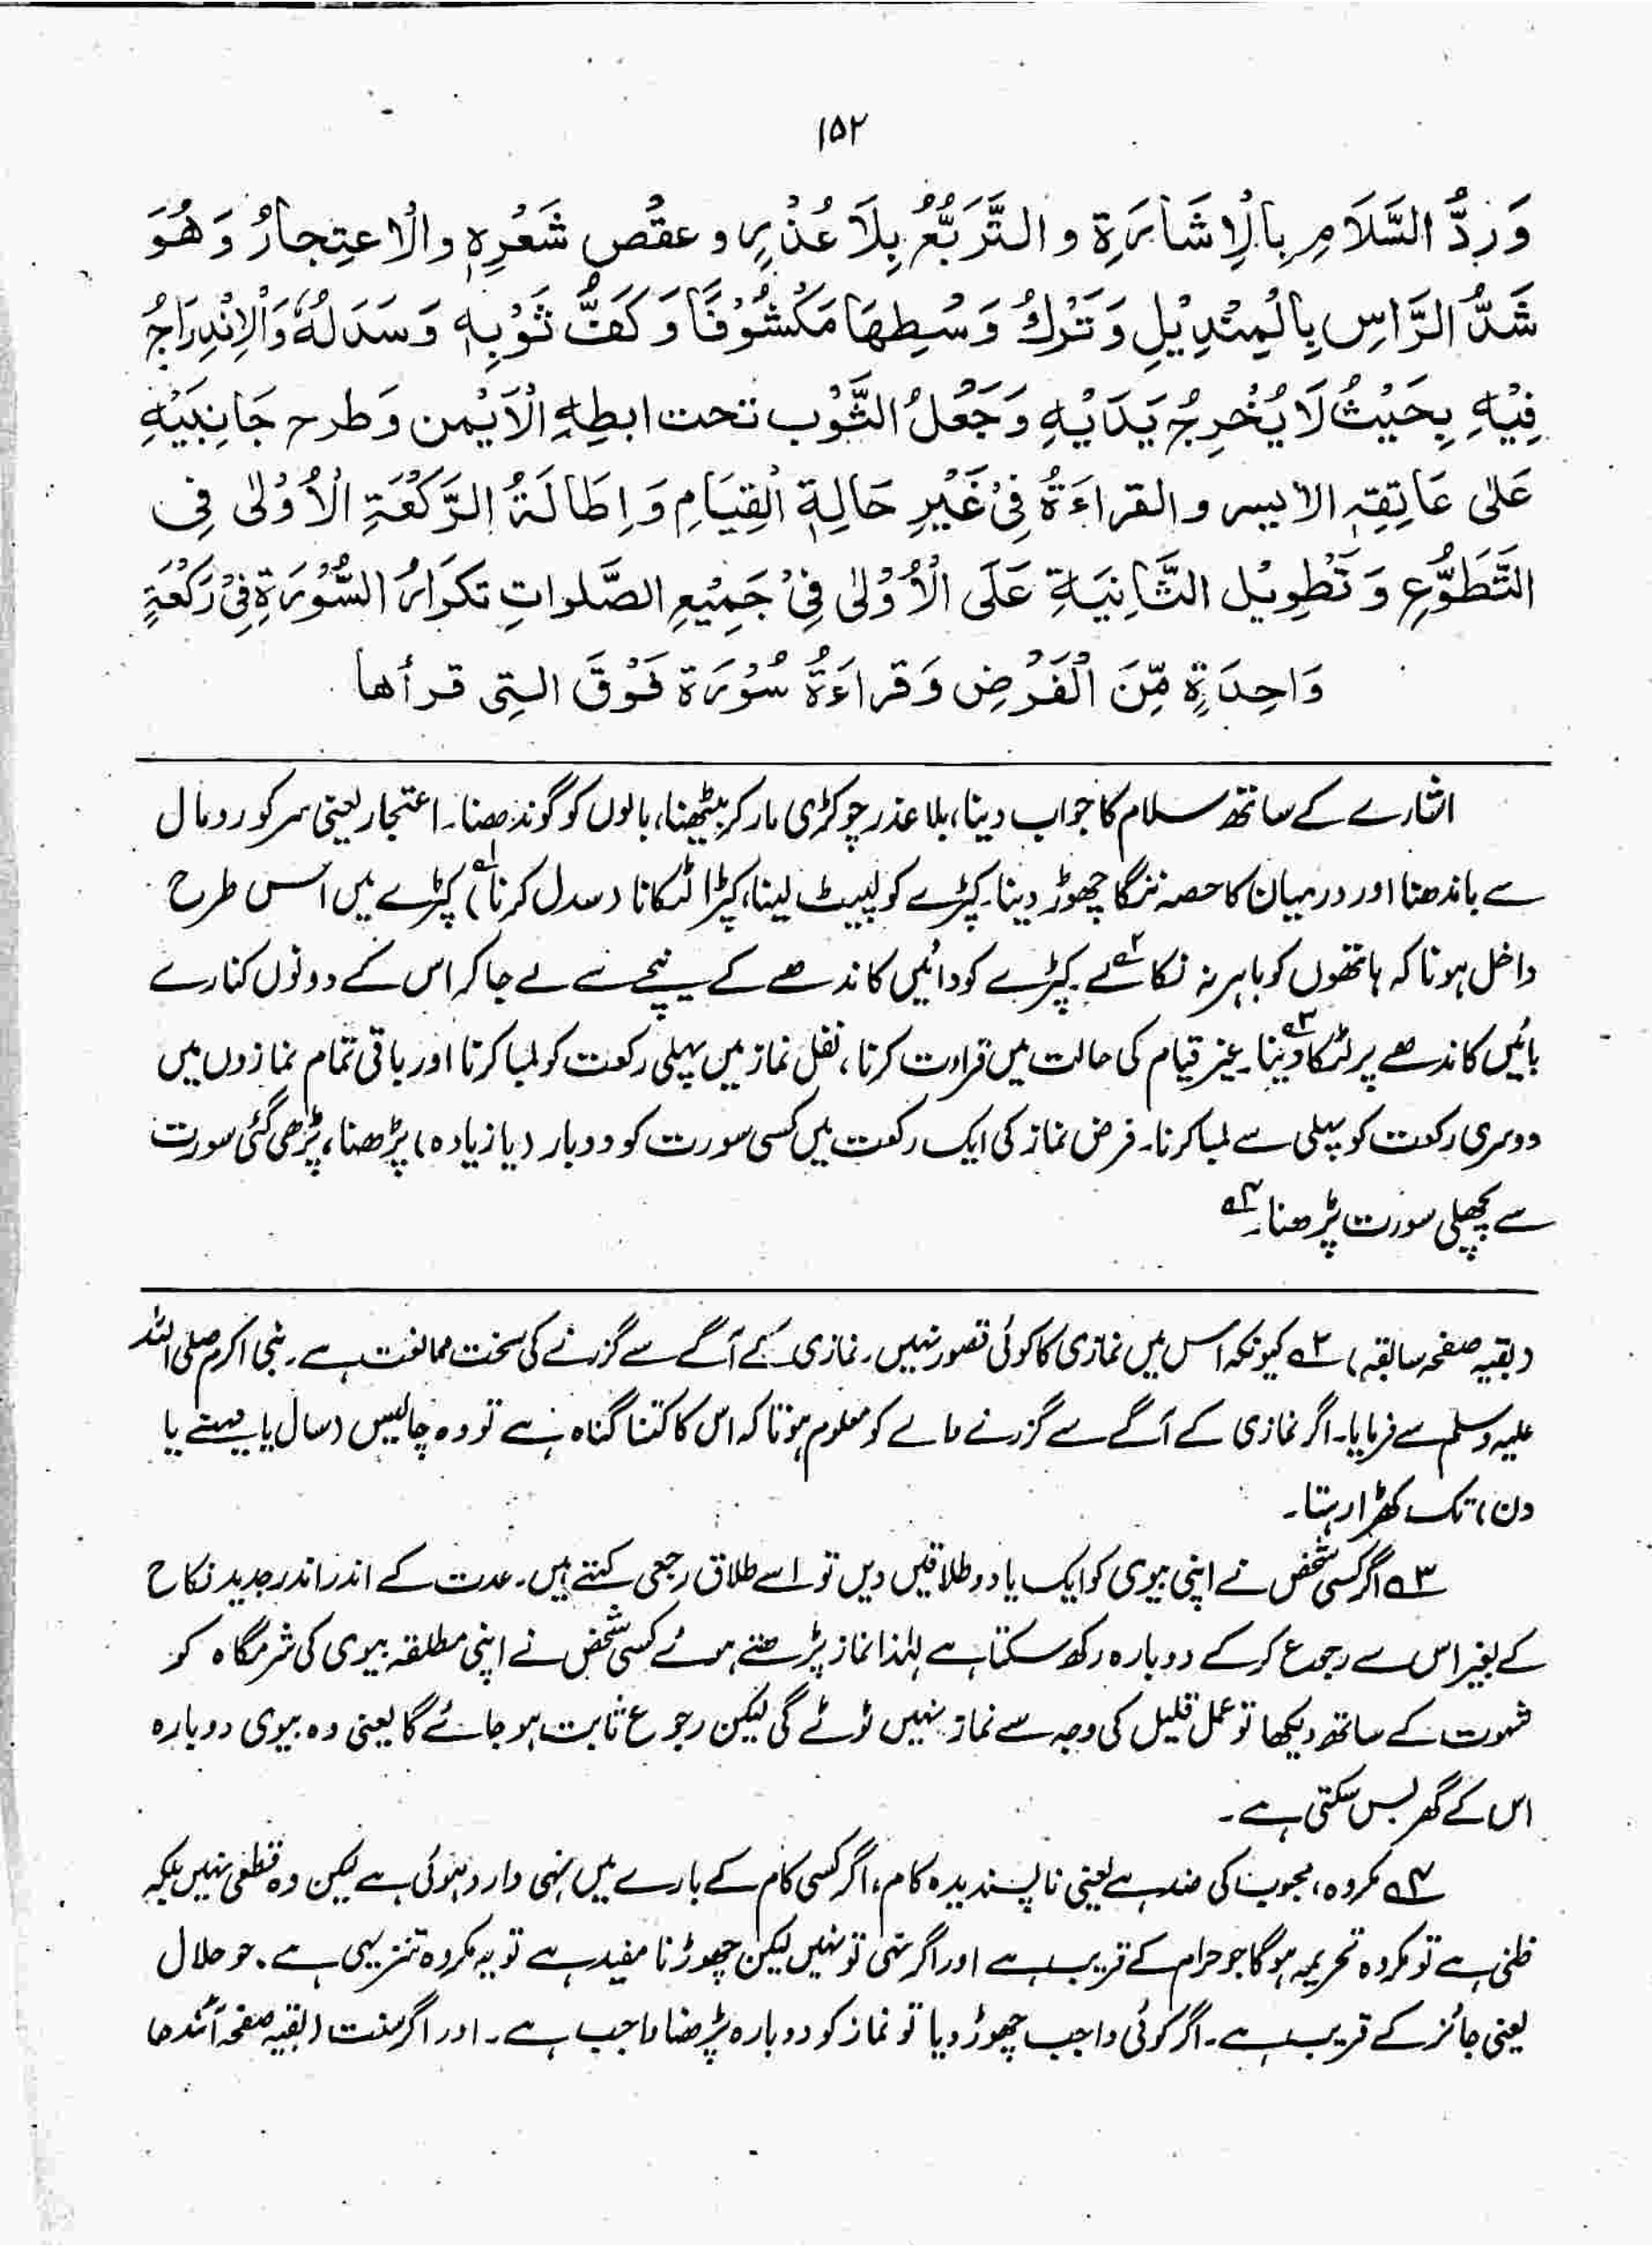 ۱۵۲
وَرَدُّ السَّلَامِ بِالْاِشَارَةِ و التَّرَبُّعُ بِلَا عُذْرٍ و عقْص شَعْرِهٖ والْاعتِجارُ وَهُوَ
شَدُّ الرَّاسِ بِالْمِنْدِيْلِ وَتَرْكُ وَسْطِهَا مَكْشُوْفًا وَكَفُّ ثَوْبِهٖ وَسَدَلهُ وَالْاِنْدِرَاجُ
فِيْهِ بِحَيْثُ لَا يُخْرِجُ يَدَيْهِ وَجَعْلُ الثَّوْب تحت ابطِهِ الْاَيْمن وَطرح جَانِبَيْهِ
عَلٰى عَاتِقِهٖ الايسر و القراءَةُ فِىْ غَيْرِ حَالِةِ الْقِيَامِ وَاِطَالَةُ الرَّكْعَةِ الْاُوْلٰى فِى
التَّطَوُّعِ وَتَطْوِيْل الثَّانِيَةِ عَلَى الْاُوْلٰى فِىْ جَمِيْعِ الصَّلواتِ تكرَارُ السُّوْرَةِ فِىْ رَكْعَةٍ
وَاحِدَةٍ مِّنَ الْفَرْضِ وَقراءَةُ سُوْرَة فَوْقَ التِى قرأها
اشارے کے ساتھ سلام کا جواب دینا، بلا عذر چوکڑی مار کر بیٹھنا، بالوں کو گوندھنا۔ اعتجار یعنی سر کو رومال
سے باندھنا اور درمیان کا حصہ ننگا چھوڑ دینا۔ کپڑے کو لپیٹ لینا، کپڑا لٹکانا (سدل کرنا)۱؎ کپڑے میں اس طرح
داخل ہونا کہ ہاتھوں کو باہر نہ نکالے۲؎ کپڑے کو دائیں کاندھے کے نیچے سے لے جا کر اس کے دونوں کنارے
بائیں کاندھے پر لٹکا دینا۳؎۔ غیر قیام کی حالت میں قراءت کرنا، نفل نماز میں پہلی رکعت کو لمبا کرنا اور باقی تمام نمازوں میں
دوسری رکعت کو پہلی سے لمبا کرنا۔ فرض نماز کی ایک رکعت میں کسی سورت کو دو بار (یا زیادہ) پڑھنا، پڑھی گئی سورت
سے پچھلی سورت پڑھنا۔۴؎
(بقیہ صفحہ سابقہ) ۲؎ کیونکہ اس میں نمازی کا کوئی قصور نہیں۔ نمازی کے آگے سے گزرنے کی سخت ممانعت ہے۔ نبی اکرم صلی اللہ
علیہ وسلم نے فرمایا۔ اگر نمازی کے آگے سے گزرنے والے کو معلوم ہوتا کہ اس کا کتنا گناہ ہے تو وہ چالیس (سال یا مہینے یا
دن) تک کھڑا رہتا۔
۳؎ اگر کسی شخص نے اپنی بیوی کو ایک یا دو طلاقیں دیں تو اسے طلاق رجعی کہتے ہیں۔ عدت کے اندر اندر جدید نکاح
کے بغیر اس سے رجوع کر کے دوبارہ رکھ سکتا ہے لہٰذا نماز پڑھتے ہوئے کسی شخص نے اپنی مطلقہ بیوی کی شرمگاہ کو
شہوت کے ساتھ دیکھا تو عمل قلیل کی وجہ سے نماز نہیں ٹوٹے گی لیکن رجوع ثابت ہو جائے گا یعنی وہ بیوی دوبارہ
اس کے گھر بس سکتی ہے۔
۴؎ مکروہ، محبوب کی ضد ہے یعنی ناپسندیدہ کام، اگر کسی کام کے بارے میں نہی وارد ہوئی ہے لیکن وہ قطعی نہیں بلکہ
ظنی ہے تو مکروہ تحریمہ ہوگا جو حرام کے قریب ہے اور اگر نہی تو نہیں لیکن چھوڑنا مفید ہے تو یہ مکروہ تنزیہی ہے۔ جو حلال
یعنی جائز کے قریب ہے۔ اگر کوئی واجب چھوڑ دیا تو نماز کو دوبارہ پڑھنا واجب ہے۔ اور اگر سنت (بقیہ صفحہ آئندہ)